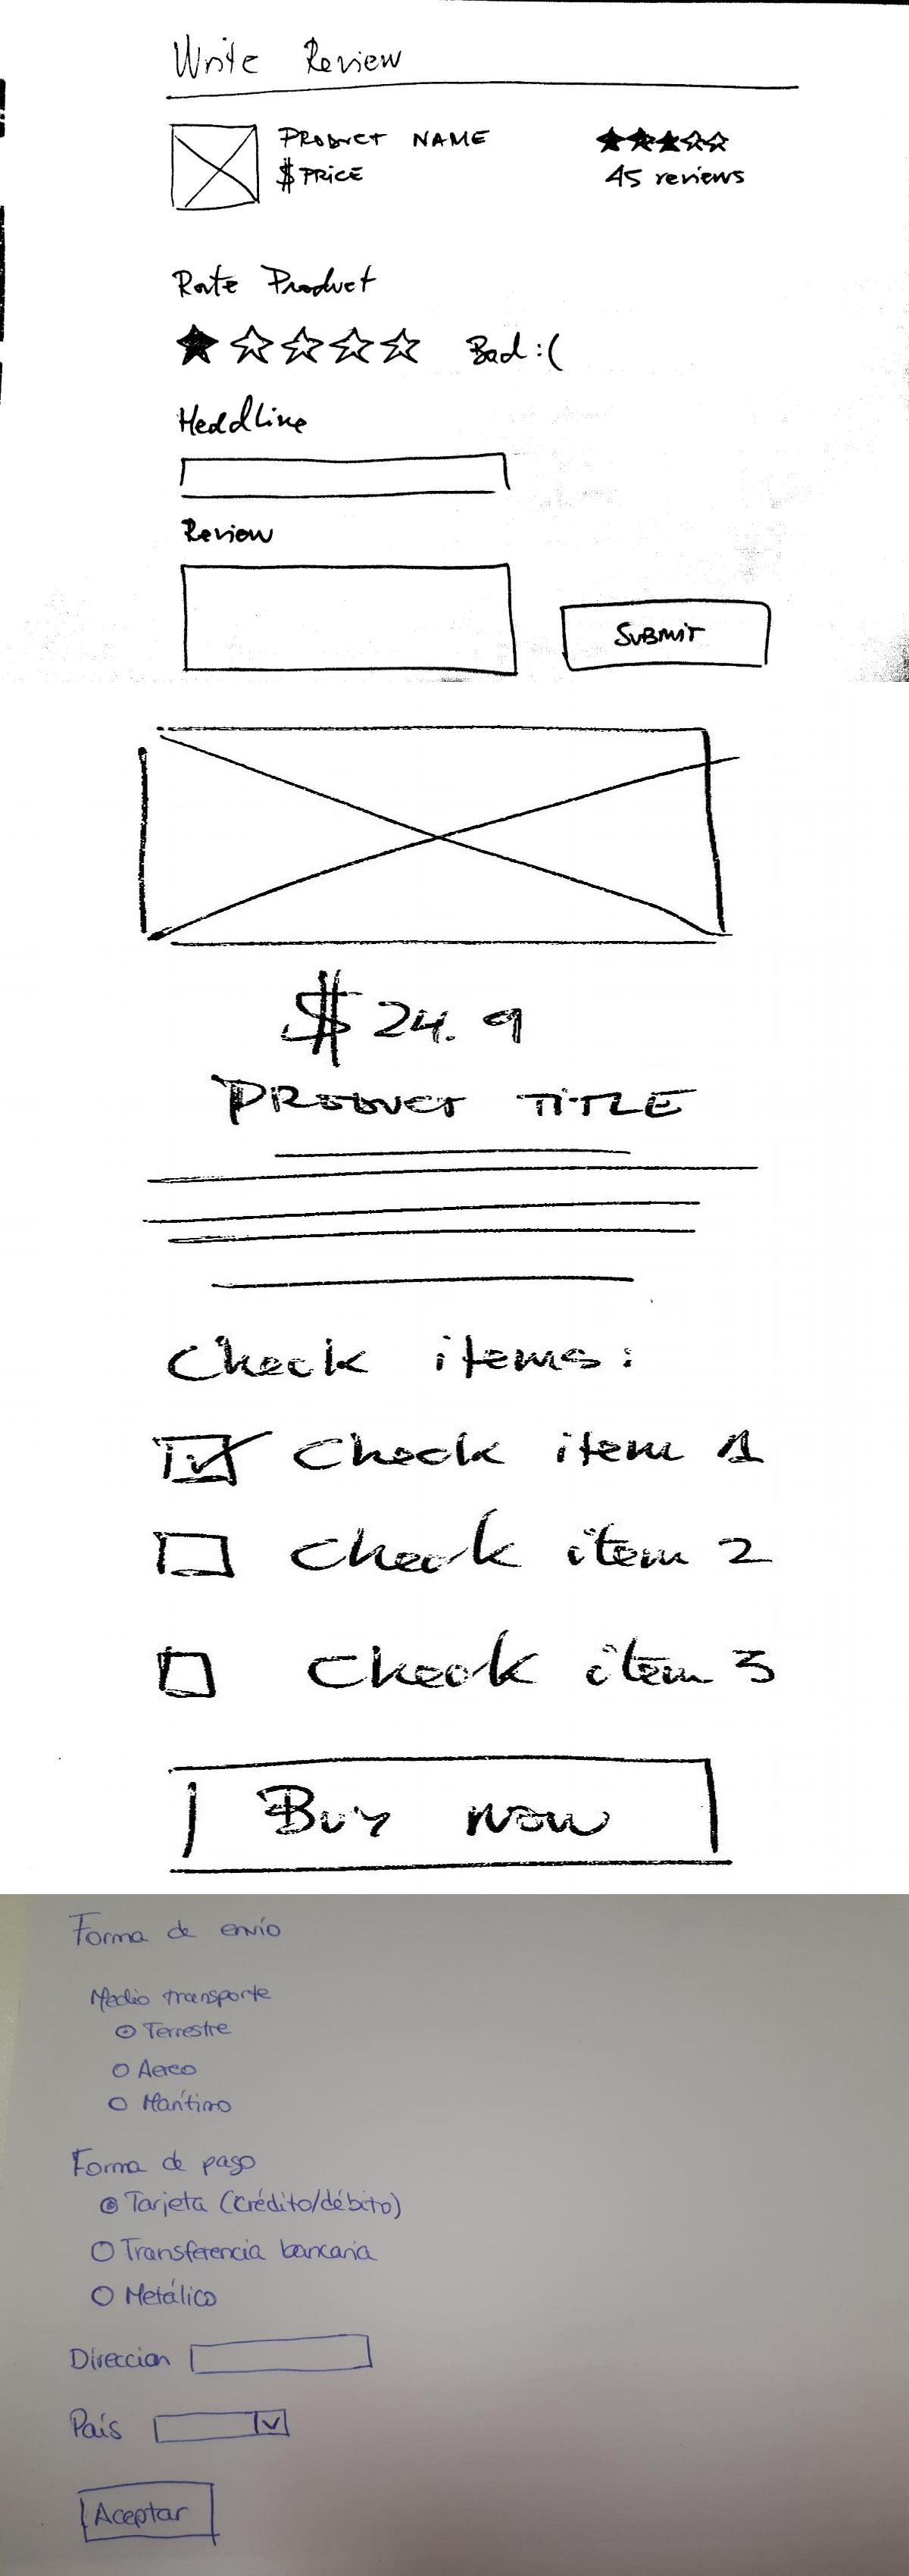 Write Review
PRODUCT NAME
$ PRICE
45 reviews
Rate Product
Bad :(
Headline
Review
SUBMIT
$ 24.9
PRODUCT TITLE
Check items:
Check item 1
Check item 2
Check item 3
Buy now
Forma de envío
Medio transporte
Terrestre
Aereo
Marítimo
Forma de pago
Tarjeta (crédito/débito)
Transferencia bancaria
Metálico
Direccion
País
Aceptar